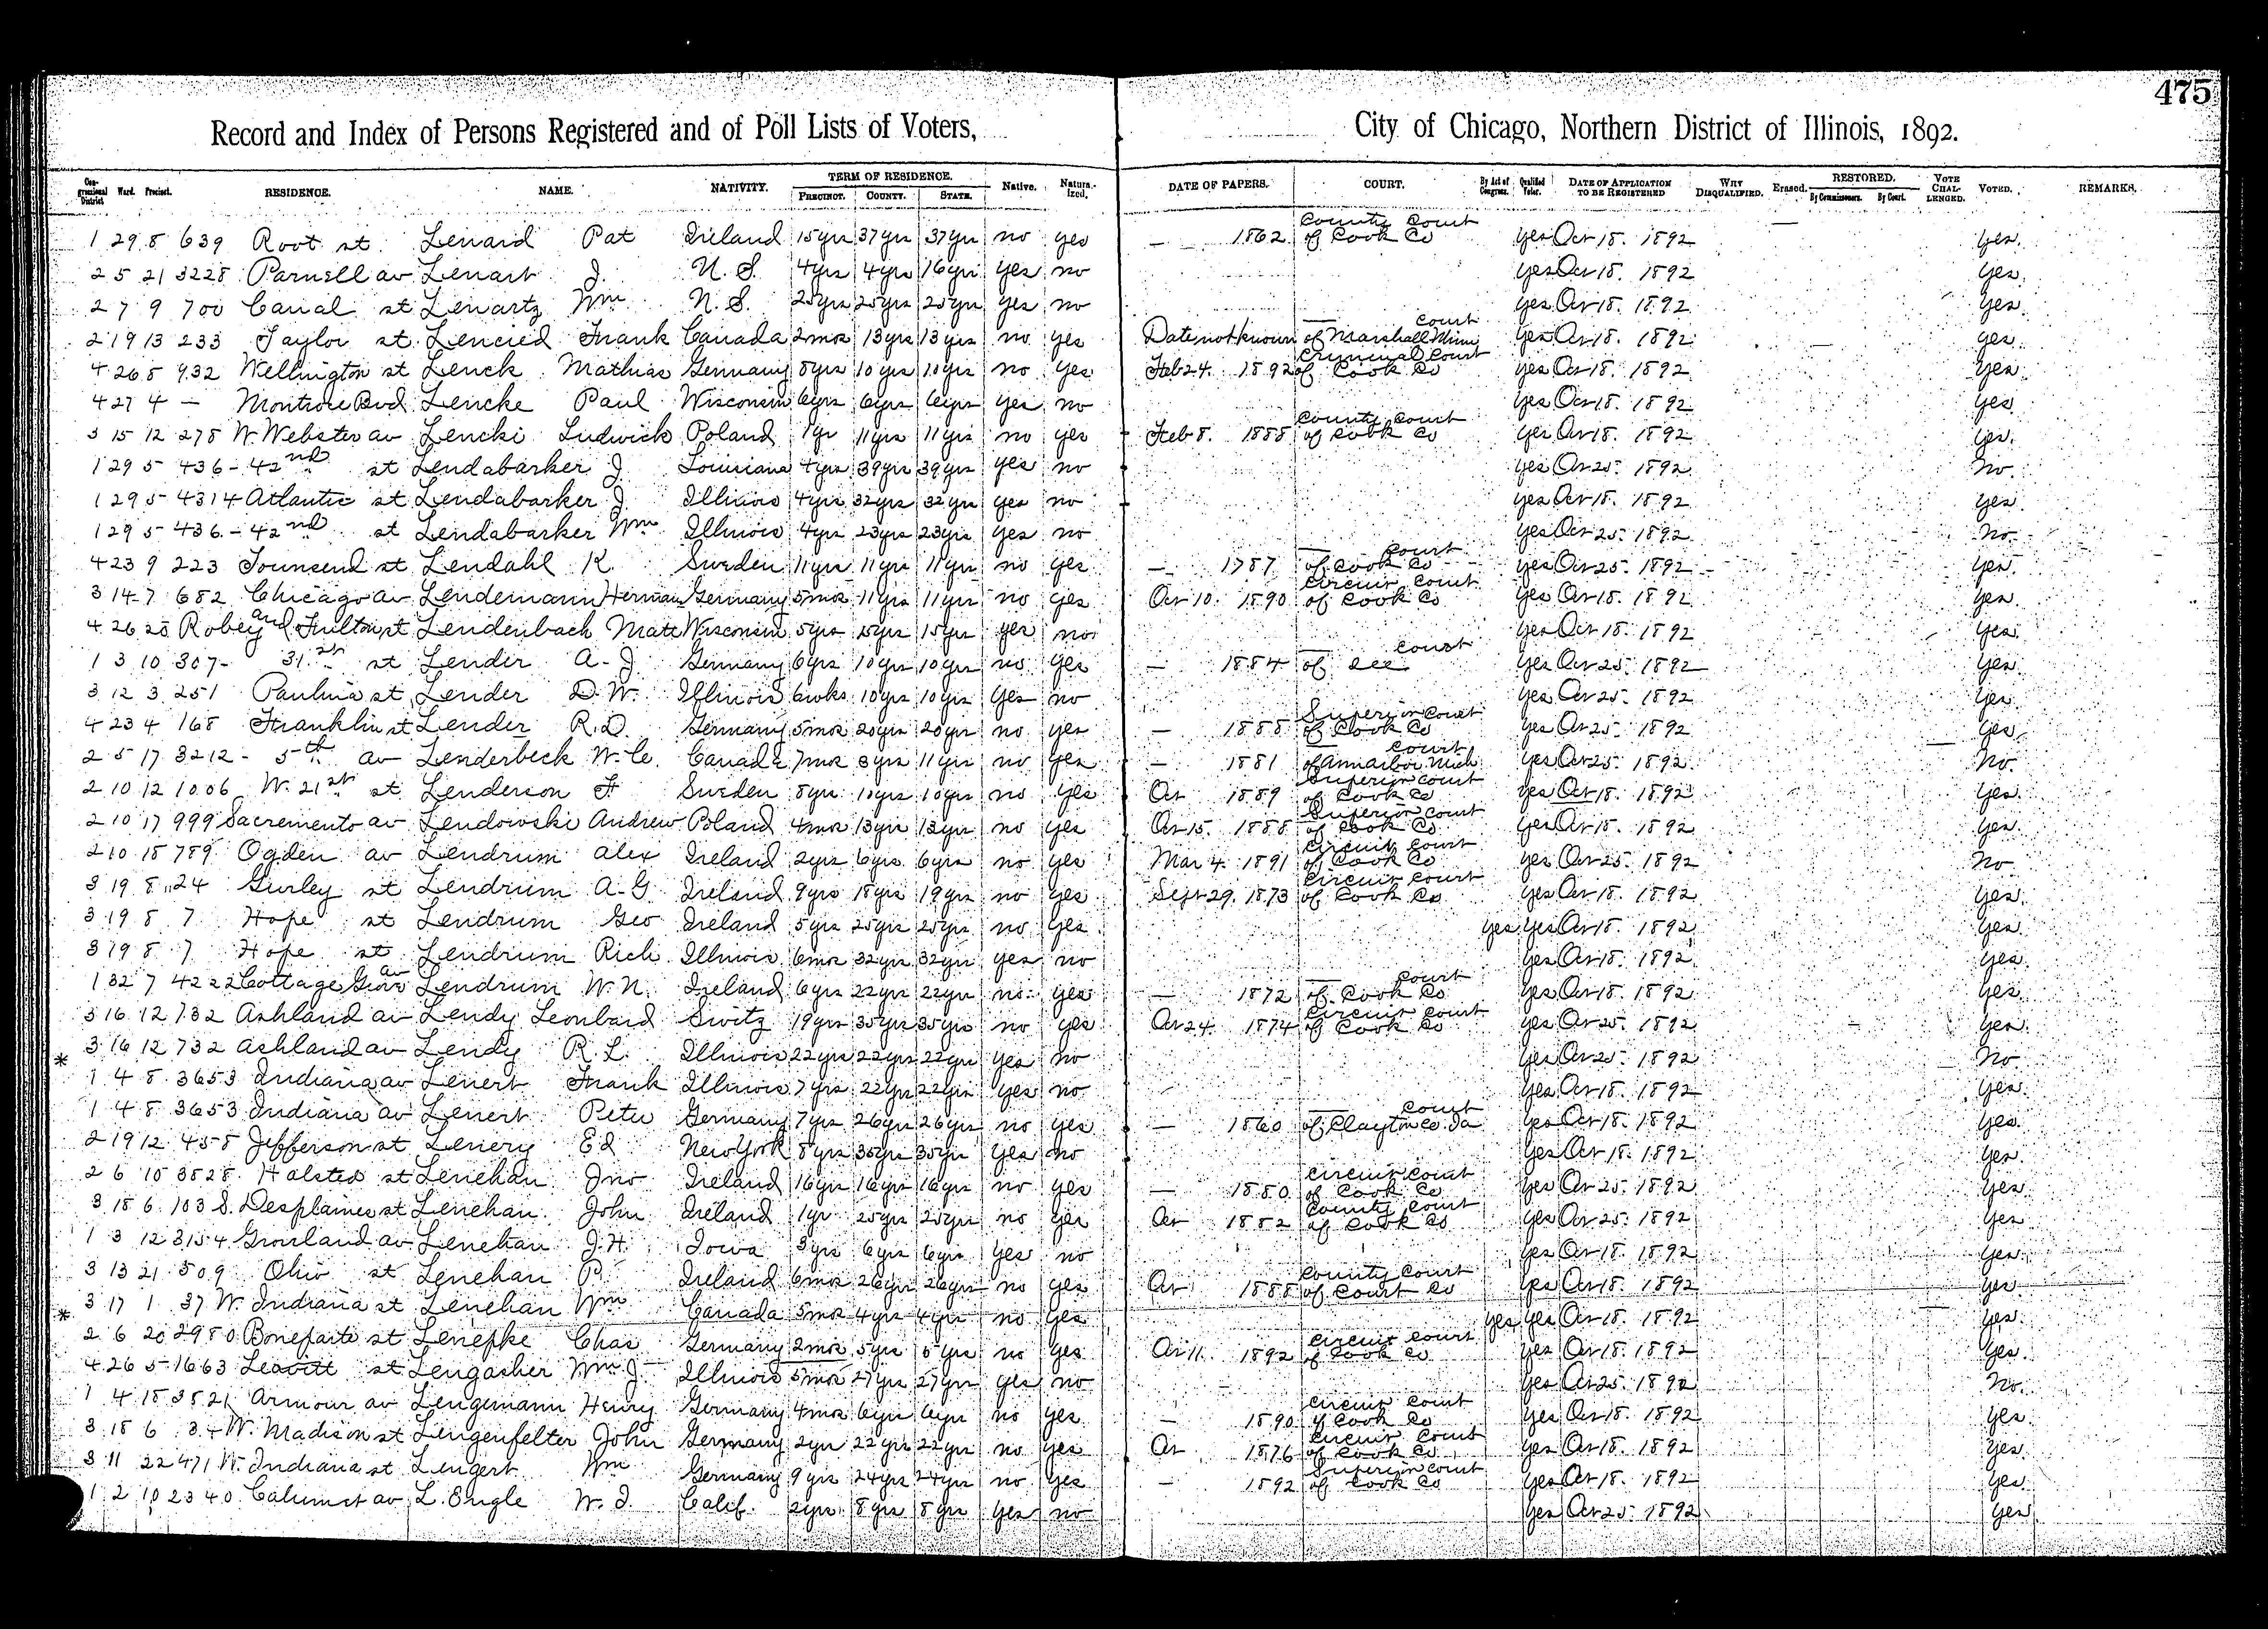 475
Record and Index of Persons Registered and of Poll Lists of Voters, City of Chicago, Northern District of Illinois, 1892.
Congressional District Ward. Precinct. RESIDENCE. NAME. NATIVITY. TERM OF RESIDENCE. PRECINCT. COUNTY. STATE. Native. Naturalized. DATE OF PAPERS. COURT. By Act of Congress. Qualified Voter. DATE OF APPLICATION TO BE REGISTERED WHY DISQUALIFIED. Erased. RESTORED. By Commissioners. By Court. VOTE CHALLENGED. VOTED. REMARKS.
1 29 8 639 Root st Lenard Pat Ireland 15yrs 37yrs 37yr no yes — 1862 County Court of Cook Co yes Oct 18. 1892 yes
2 5 21 3228 Parnell av Lenart J. U. S. 4yrs 4yrs 16yrs yes no yes Oct 18. 1892 yes
2 7 9 700 Canal st Lenartz Wm U. S. 25yrs 25yrs 25yrs yes no yes Oct 18. 1892 yes
2 19 13 233 Taylor st Lencied Frank Canada 2mos 13yrs 13yrs no yes Date not known — Court of Marshall Minn yes Oct 18. 1892 yes
4 26 8 932 Wellington st Lenck Mathias Germany 8yrs 10yrs 10yrs no yes Feb 24. 1892 Criminal Court of Cook Co yes Oct 18. 1892 yes
4 27 4 — Montrose Bvd Lencke Paul Wisconsin 6yrs 6yrs 6yrs yes no yes Oct 18. 1892 yes
3 15 12 278 W. Webster av Lencki Ludwick Poland 1yr 11yrs 11yrs no yes Feb 8. 1888 County Court of Cook Co yes Oct 18. 1892 yes
1 29 5 436 - 42nd st Lendabarker J. Louisiana 4yrs 39yrs 39yrs yes no yes Oct 25. 1892 No
1 29 5 4314 Atlantic st Lendabarker J. Illinois 4yrs 32yrs 32yrs yes no yes Oct 18. 1892 yes
1 29 5 436 - 42nd st Lendabarker Wm Illinois 4yrs 23yrs 23yrs yes no yes Oct 25. 1892 No
4 23 9 223 Townsend st Lendahl K. Sweden 11yrs 11yrs 11yrs no yes — 1787 — Court of Cook Co yes Oct 25. 1892 yes
3 14 7 682 Chicago av Lendemann Herman Germany 5mos 11yrs 11yrs no yes Oct 10. 1890 Circuit Court of Cook Co yes Oct 18. 1892 yes
4 26 25 Robey and Fulton st Lendenbach Matt Wisconsin 5yrs 15yrs 15yrs yes no yes Oct 18. 1892 yes
1 3 10 307 - 31st st Lender A. J. Germany 6yrs 10yrs 10yrs no yes — 1884 — Court of Lee yes Oct 25. 1892 yes
3 12 3 251 Paulina st Lender D. W. Illinois 6wks 10yrs 10yrs yes no yes Oct 25. 1892 yes
4 23 4 168 Franklin st Lender R. D. Germany 5mos 20yrs 20yrs no yes — 1888 Superior Court of Cook Co yes Oct 25. 1892 yes
2 5 17 3212 - 5th av Lenderbeck W. C. Canada 7mos 8yrs 11yrs no yes — 1881 — Court of Annarbor Mich yes Oct 25. 1892 No
2 10 12 1006 W. 21st st Lenderson F Sweden 8yrs 10yrs 10yrs no yes Oct 1889 Superior Court of Cook Co yes Oct 18. 1892 yes
2 10 17 999 Sacremento av Lendowski Andrew Poland 4mos 13yrs 13yrs no yes Oct 15. 1888 Superior Court of Cook Co yes Oct 18. 1892 yes
2 10 18 789 Ogden av Lendrum Alex Ireland 2yrs 6yrs 6yrs no yes Mar 4. 1891 Circuit Court of Cook Co yes Oct 25. 1892 No
3 19 8 124 Gurley st Lendrum A. G. Ireland 9yrs 18yrs 19yrs no yes Sept 29. 1873 Circuit Court of Cook Co yes Oct 18. 1892 yes
3 19 8 7 Hope st Lendrum Geo Ireland 5yrs 25yrs 25yrs no yes yes yes Oct 18. 1892 yes
3 19 8 7 Hope st Lendrum Rich Illinois 6mos 32yrs 32yrs yes no yes Oct 18. 1892 yes
1 32 7 4222 Cottage Grov av Lendrum W. N. Ireland 6yrs 22yrs 22yrs no yes — 1872 — Court of Cook Co yes Oct 18. 1892 yes
3 16 12 732 Ashland av Lendy Leonbard Switz 19yrs 35yrs 35yrs no yes Oct 24. 1874 Circuit Court of Cook Co yes Oct 25. 1892 yes
* 3 16 12 732 Ashland av Lendy R. L. Illinois 22yrs 22yrs 22yrs yes no yes Oct 25. 1892 No
1 4 8 3653 Indiana av Lenert Frank Illinois 7yrs 22yrs 22yrs yes no yes Oct 18. 1892 yes
1 4 8 3653 Indiana av Lenert Peter Germany 7yrs 26yrs 26yrs no yes — 1860 — Court of Clayton Co. Ia yes Oct 18. 1892 yes
2 19 12 458 Jefferson st Lenery Ed New York 8yrs 30yrs 30yrs yes no yes Oct 18. 1892 yes
2 6 10 3828 Halsted st Lenehan Jno Ireland 16yrs 16yrs 16yrs no yes — 1880 Circuit Court of Cook Co yes Oct 25. 1892 yes
3 18 6 103 S. Desplaines st Lenehan John Ireland 1yr 25yrs 25yrs no yes Oct 1882 County Court of Cook Co yes Oct 25. 1892 yes
1 3 12 3154 Grovland av Lenehan J. H. Iowa 3yrs 6yrs 6yrs yes no yes Oct 18. 1892 yes
3 13 21 509 Ohio st Lenehan P. Ireland 6mos 26yrs 26yrs no yes Oct 1888 County Court of Court Co yes Oct 18. 1892 yes
* 3 17 1 37 W. Indiana st Lenehan Wm Canada 5mos 4yrs 4yrs no yes yes yes Oct 18. 1892 yes
2 6 20 2980 Boneparte st Lenepke Chas Germany 2mos 5yrs 5yrs no yes Oct 11. 1892 Circuit Court of Cook Co yes Oct 18. 1892 yes
4 26 5 1663 Leavitt st Lengasher Wm J. Illinois 5mos 27yrs 27yrs yes no yes Oct 25. 1892 No
1 4 18 3521 Armour av Lengemann Henry Germany 4mos 6yrs 6yrs no yes — 1890 Circuit Court of Cook Co yes Oct 18. 1892 yes
3 18 6 34 W. Madison st Lengenfelter John Germany 2yrs 22yrs 22yrs no yes Oct 1876 Circuit Court of Cook Co yes Oct 18. 1892 yes
3 11 22 471 W. Indiana st Lengert Wm Germany 9yrs 24yrs 24yrs no yes — 1892 Superior Court of Cook Co yes Oct 18. 1892 yes
1 2 10 2340 Calumet av L. Engle W. I. Calif. 2yrs 8yrs 8yrs yes no yes Oct 25. 1892 yes